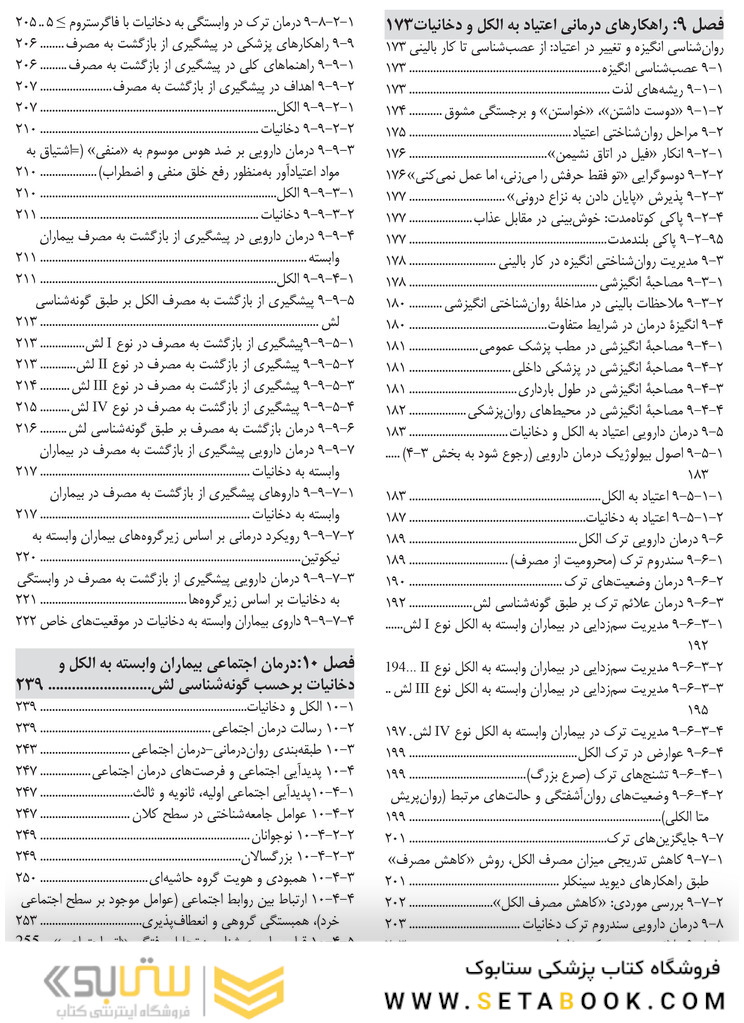 فصل ۹: راهکارهای درمانی اعتیاد به الکل و دخانیات۱۷۳
روان‌شناسی انگیزه و تغییر در اعتیاد: از عصب‌شناسی تا کار بالینی ۱۷۳
۹-۱ عصب‌شناسی انگیزه ۱۷۳
۹-۱-۱ ریشه‌های لذت ۱۷۳
۹-۱-۲ «دوست داشتن»، «خواستن» و برجستگی مشوق ۱۷۴
۹-۲ مراحل روان‌شناختی اعتیاد ۱۷۵
۹-۲-۱ انکار «فیل در اتاق نشیمن» ۱۷۶
۹-۲-۲ دوسوگرایی «تو فقط حرفش را می‌زنی، اما عمل نمی‌کنی» ۱۷۶
۹-۲-۳ پذیرش «پایان دادن به نزاع درونی» ۱۷۷
۹-۲-۴ پاکی کوتاه‌مدت: خوش‌بینی در مقابل عذاب ۱۷۷
۹-۲-۹۵ پاکی بلندمدت ۱۷۷
۹-۳ مدیریت روان‌شناختی انگیزه در کار بالینی ۱۷۸
۹-۳-۱ مصاحبهٔ انگیزشی ۱۷۸
۹-۳-۲ ملاحظات بالینی در مداخلهٔ روان‌شناختی انگیزشی ۱۸۰
۹-۴ انگیزهٔ درمان در شرایط متفاوت ۱۸۰
۹-۴-۱ مصاحبهٔ انگیزشی در مطب پزشک عمومی ۱۸۱
۹-۴-۲ مصاحبهٔ انگیزشی در پزشکی داخلی ۱۸۱
۹-۴-۳ مصاحبهٔ انگیزشی در طول بارداری ۱۸۱
۹-۴-۴ مصاحبهٔ انگیزشی در محیط‌های روان‌پزشکی ۱۸۲
۹-۵ درمان دارویی اعتیاد به الکل و دخانیات ۱۸۳
۹-۵-۱ اصول بیولوژیک درمان دارویی (رجوع شود به بخش ۳-۴) .....
۱۸۳
۹-۵-۱-۱ اعتیاد به الکل ۱۸۳
۹-۵-۱-۲ اعتیاد به دخانیات ۱۸۷
۹-۶ درمان دارویی ترک الکل ۱۸۹
۹-۶-۱ سندروم ترک (محرومیت از مصرف) ۱۸۹
۹-۶-۲ درمان وضعیت‌های ترک ۱۹۰
۹-۶-۳ درمان علائم ترک بر طبق گونه‌شناسی لش ۱۹۲
۹-۶-۳-۱ مدیریت سم‌زدایی در بیماران وابسته به الکل نوع I لش......
۱۹۲
۹-۶-۳-۲ مدیریت سم‌زدایی در بیماران وابسته به الکل نوع II ...194
۹-۶-۳-۳ مدیریت سم‌زدایی در بیماران وابسته به الکل نوع III لش ..
۱۹۵
۹-۶-۳-۴ مدیریت ترک در بیماران وابسته به الکل نوع IV لش. ۱۹۷
۹-۶-۴ عوارض در ترک الکل ۱۹۹
۹-۶-۴-۱ تشنج‌های ترک (صرع بزرگ) ۱۹۹
۹-۶-۴-۲ وضعیت‌های روان‌آشفتگی و حالت‌های مرتبط (روان‌پریش
متا الکلی) ۱۹۹
۹-۷ جایگزین‌های ترک ۲۰۱
۹-۷-۱ کاهش تدریجی میزان مصرف الکل، روش «کاهش مصرف»
طبق راهکارهای دیوید سینکلر ۲۰۱
۹-۷-۲ بررسی موردی: «کاهش مصرف الکل» ۲۰۲
۹-۸ درمان دارویی سندروم ترک دخانیات ۲۰۳
۹-۸-۲-۱ درمان ترک در وابستگی به دخانیات با فاگرستروم ≥ ۵ .. ۲۰۵
۹-۹ راهکارهای پزشکی در پیشگیری از بازگشت به مصرف ۲۰۶
۹-۹-۱ راهنماهای کلی در پیشگیری از بازگشت به مصرف ۲۰۶
۹-۹-۲ اهداف در پیشگیری از بازگشت به مصرف ۲۰۷
۹-۹-۲-۱ الکل ۲۰۷
۹-۹-۲-۲ دخانیات ۲۱۰
۹-۹-۳ درمان دارویی بر ضد هوس موسوم به «منفی» (=اشتیاق به
مواد اعتیادآور به‌منظور رفع خلق منفی و اضطراب) ۲۱۰
۹-۹-۳-۱ الکل ۲۱۰
۹-۹-۳-۲ دخانیات ۲۱۱
۹-۹-۴ درمان دارویی در پیشگیری از بازگشت به مصرف بیماران
وابسته ۲۱۱
۹-۹-۴-۱ الکل ۲۱۱
۹-۹-۵ پیشگیری از بازگشت به مصرف الکل بر طبق گونه‌شناسی
لش ۲۱۳
۹-۹-۵-۱پیشگیری از بازگشت به مصرف در نوع I لش ۲۱۳
۹-۹-۵-۲ پیشگیری از بازگشت به مصرف در نوع II لش ۲۱۳
۹-۹-۵-۳ پیشگیری از بازگشت به مصرف در نوع III لش ۲۱۴
۹-۹-۵-۴ پیشگیری از بازگشت به مصرف در نوع IV لش ۲۱۵
۹-۹-۶ درمان بازگشت به مصرف بر طبق گونه‌شناسی لش ۲۱۶
۹-۹-۷ درمان دارویی پیشگیری از بازگشت به مصرف در بیماران
وابسته به دخانیات ۲۱۷
۹-۹-۷-۱ داروهای پیشگیری از بازگشت به مصرف در بیماران
وابسته به دخانیات ۲۱۷
۹-۹-۷-۲ رویکرد درمانی بر اساس زیرگروه‌های بیماران وابسته به
نیکوتین ۲۲۰
۹-۹-۷-۳ درمان دارویی پیشگیری از بازگشت به مصرف در وابستگی
به دخانیات بر اساس زیرگروه‌ها ۲۲۱
۹-۹-۷-۴ داروی بیماران وابسته به دخانیات در موقعیت‌های خاص ۲۲۲
فصل ۱۰:درمان اجتماعی بیماران وابسته به الکل و
دخانیات برحسب گونه‌شناسی لش ۲۳۹
۱۰-۱ الکل و دخانیات ۲۳۹
۱۰-۲ رسالت درمان اجتماعی ۲۳۹
۱۰-۳ طبقه‌بندی روان‌درمانی-درمان اجتماعی ۲۴۳
۱۰-۴ پدیدآیی اجتماعی و فرصت‌های درمان اجتماعی ۲۴۷
۱۰-۴-۱پدیدآیی اجتماعی اولیه، ثانویه و ثالث ۲۴۷
۱۰-۴-۲ عوامل جامعه‌شناختی در سطح کلان ۲۴۷
۱۰-۴-۲-۲ نوجوانان ۲۴۹
۱۰-۴-۲-۳ بزرگسالان ۲۴۹
۱۰-۴-۳ همبودی و هویت گروه حاشیه‌ای ۲۵۰
۱۰-۴-۴ ارتباط بین روابط اجتماعی (عوامل موجود بر سطح اجتماعی
خرد)، همبستگی گروهی و انعطاف‌پذیری ۲۵۳
فروشگاه کتاب پزشکی ستابوک
WWW.SETABOOK.COM
ستابوک
فروشگاه اینترنتی کتاب